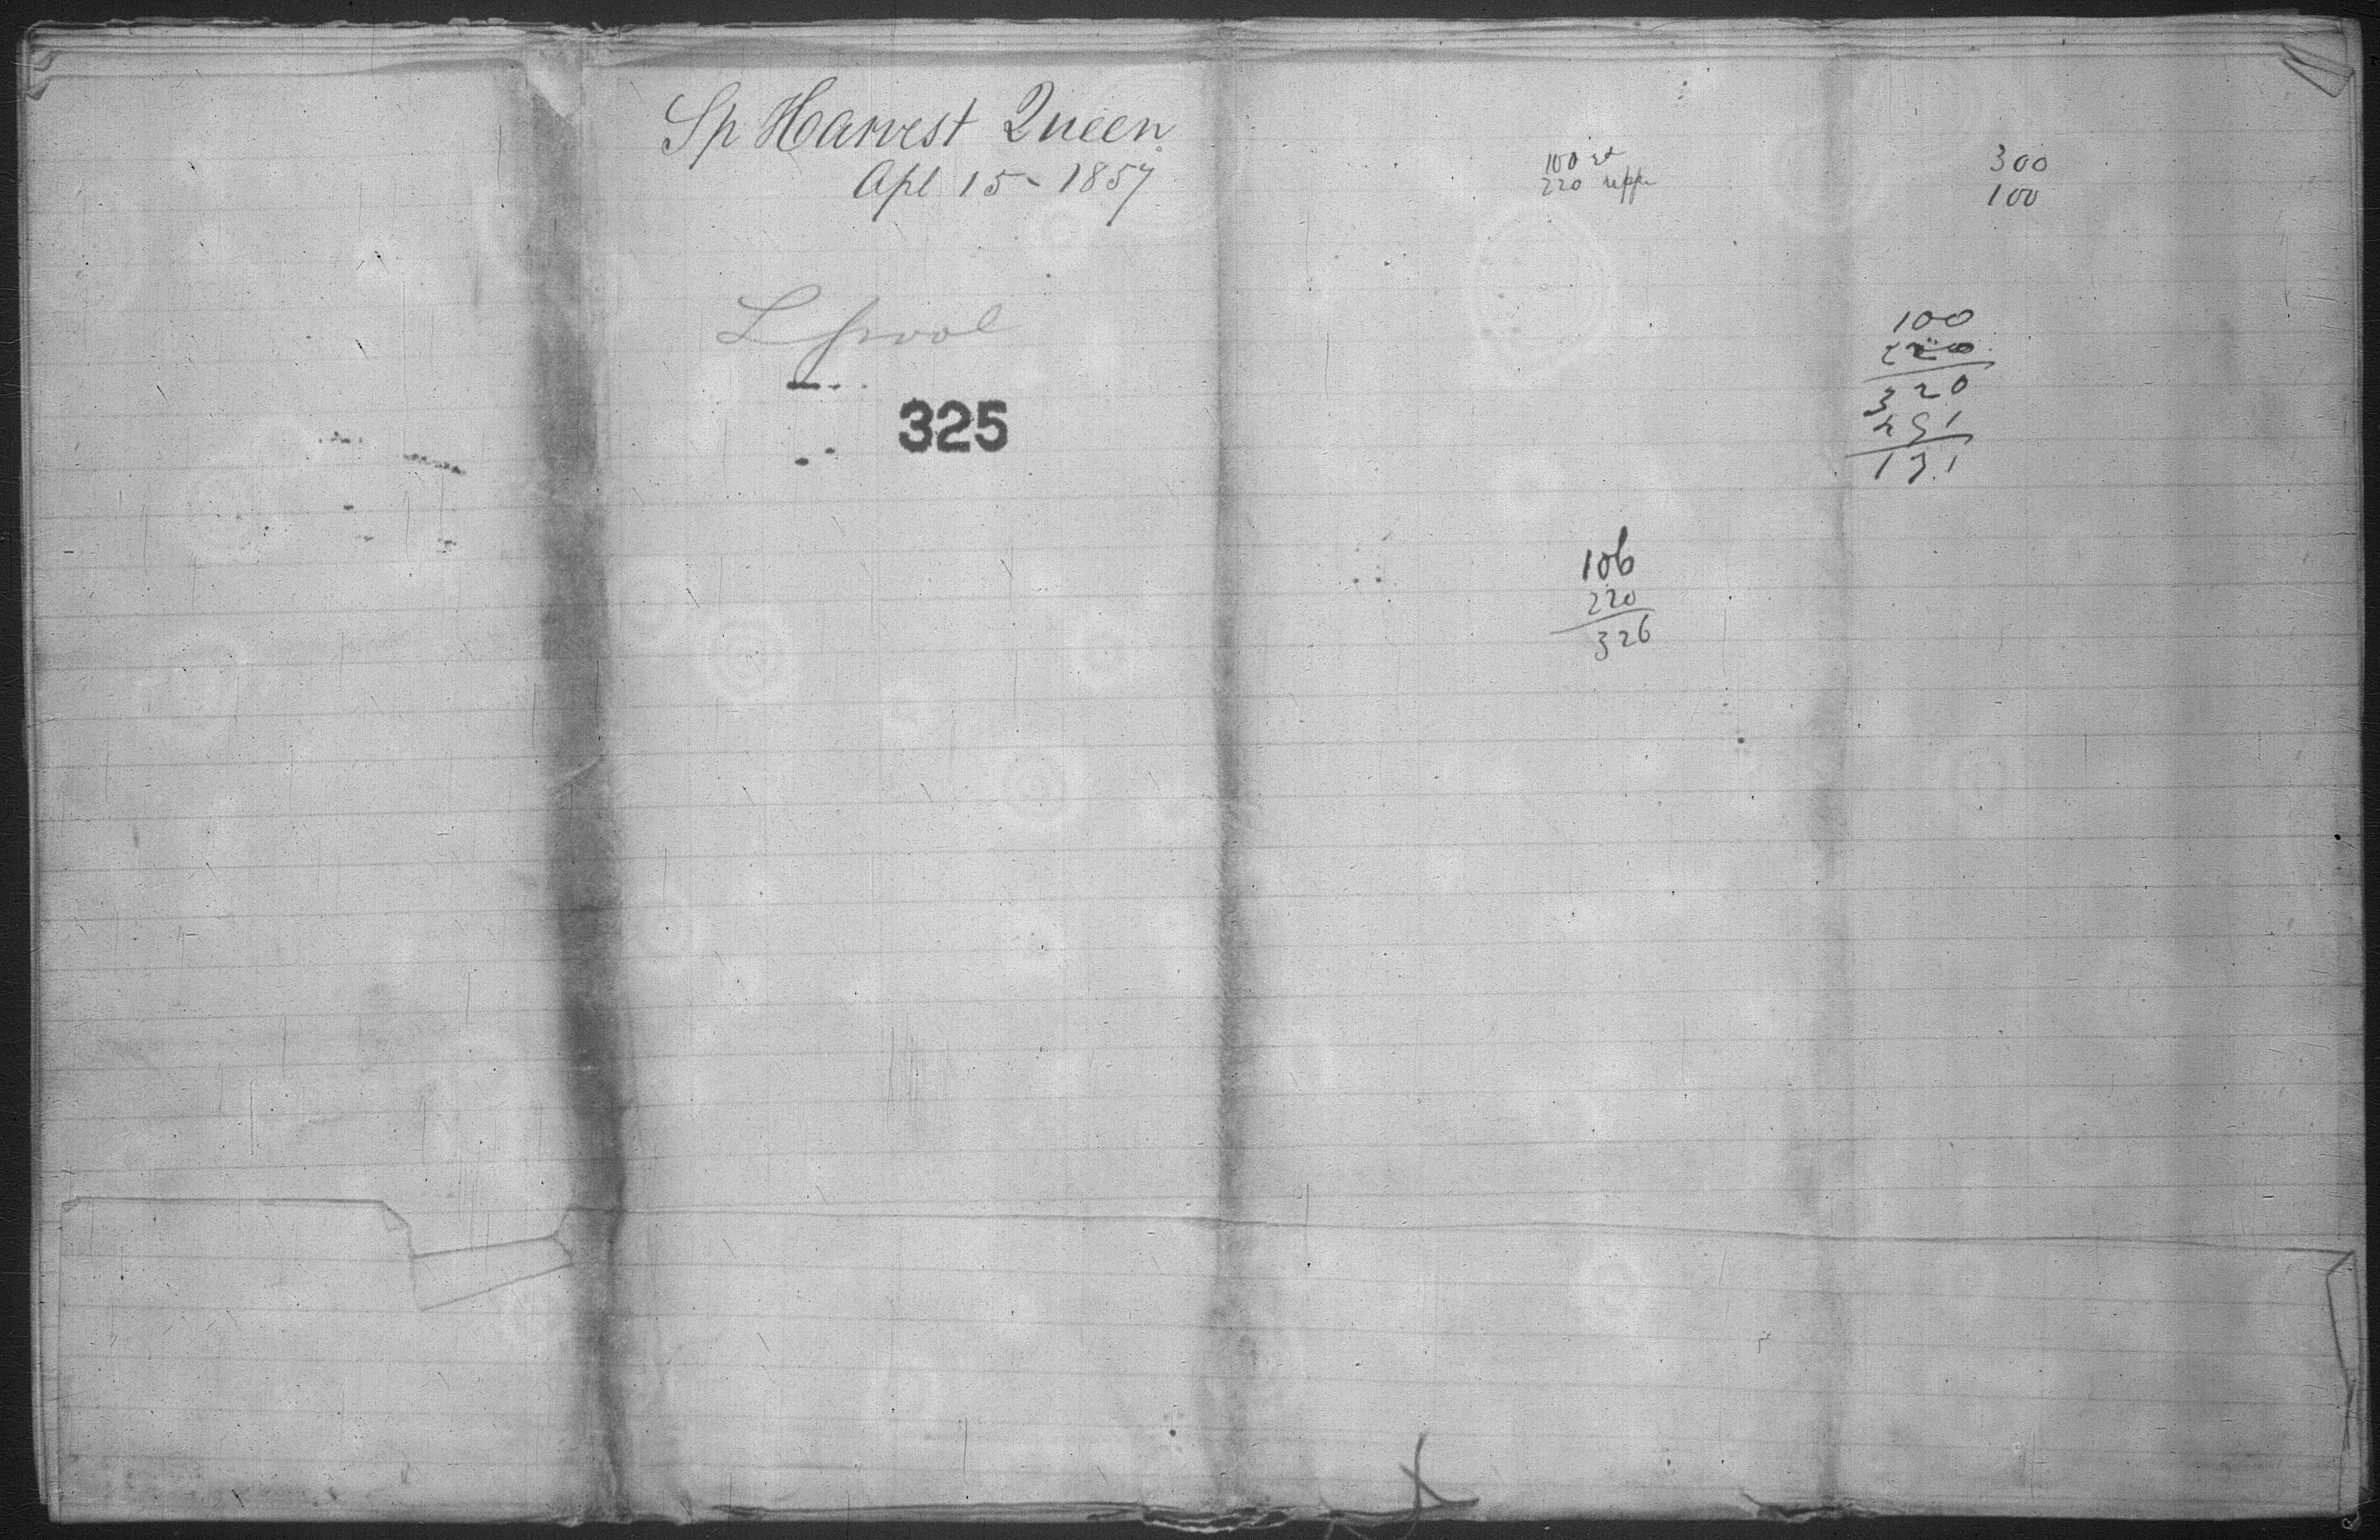 Sp Harvest Queen
Apl 15 - 1857
Lpool
325
100
220 upp
106
220
326
300
100
100
220
320
131